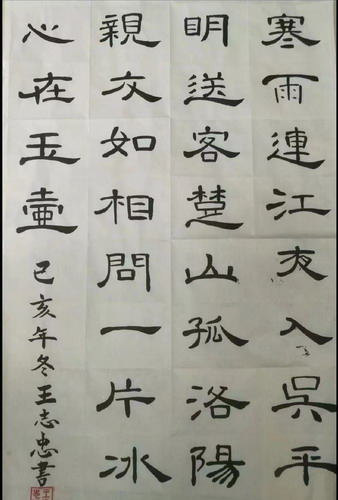 寒雨連江夜入吳平
眀送客楚山孤洛陽
親友如相問一片冰
心在玉壺
己亥年冬王志忠書